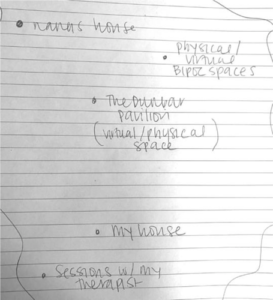 • nana's house
• physical/
virtual
BIPOC spaces
• The Dunbar
pavilion
(virtual/physical
space)
• my house
• sessions w/ my
therapist